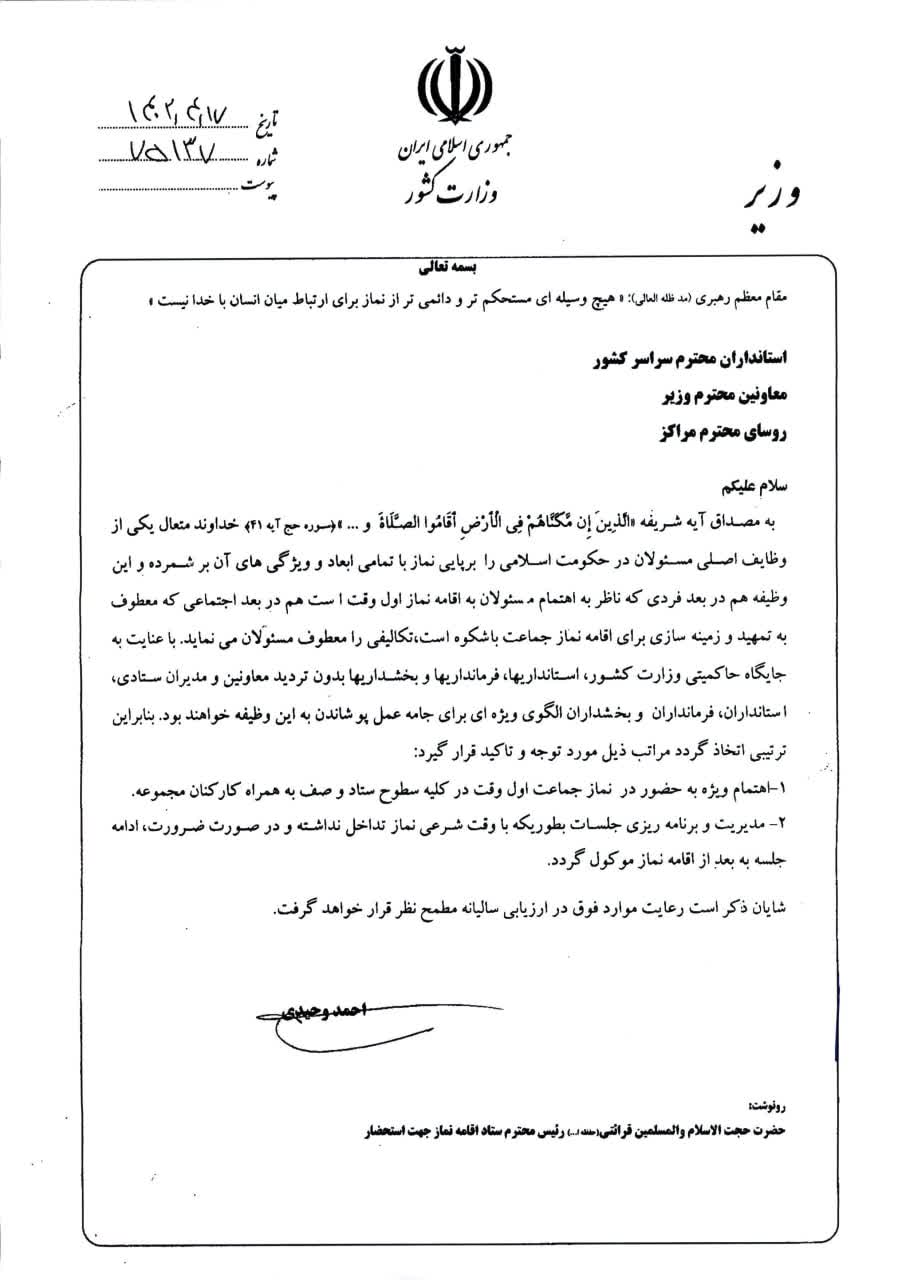 جمهوری اسلامی ایران
وزارت کشور
وزیر
تاریخ ۱۴۰۲,۴,۱۷
شماره ۷۵۱۳۷
پیوست
بسمه تعالی
مقام معظم رهبری (مد ظله العالی): « هیچ وسیله ای مستحکم تر و دائمی تر از نماز برای ارتباط میان انسان با خدا نیست »
استانداران محترم سراسر کشور
معاونین محترم وزیر
روسای محترم مراکز
سلام علیکم
به مصداق آیه شریفه «الَّذِينَ إِن مَّكَّنَّاهُمْ فِي الْأَرْضِ أَقَامُوا الصَّلَاةَ و ... »(سوره حج آیه ۴۱) خداوند متعال یکی از
وظایف اصلی مسئولان در حکومت اسلامی را برپایی نماز با تمامی ابعاد و ویژگی های آن بر شمرده و این
وظیفه هم در بعد فردی که ناظر به اهتمام مسئولان به اقامه نماز اول وقت است هم در بعد اجتماعی که معطوف
به تمهید و زمینه سازی برای اقامه نماز جماعت باشکوه است،تکالیفی را معطوف مسئولان می نماید. با عنایت به
جایگاه حاکمیتی وزارت کشور، استانداریها، فرمانداریها و بخشداریها بدون تردید معاونین و مدیران ستادی،
استانداران، فرمانداران و بخشداران الگوی ویژه ای برای جامه عمل پوشاندن به این وظیفه خواهند بود. بنابراین
ترتیبی اتخاذ گردد مراتب ذیل مورد توجه و تاکید قرار گیرد:
۱-اهتمام ویژه به حضور در نماز جماعت اول وقت در کلیه سطوح ستاد و صف به همراه کارکنان مجموعه.
۲- مدیریت و برنامه ریزی جلسات بطوریکه با وقت شرعی نماز تداخل نداشته و در صورت ضرورت، ادامه
جلسه به بعد از اقامه نماز موکول گردد.
شایان ذکر است رعایت موارد فوق در ارزیابی سالیانه مطمح نظر قرار خواهد گرفت.
احمد وحیدی
رونوشت:
حضرت حجت الاسلام والمسلمین قرائتی رئیس محترم ستاد اقامه نماز جهت استحضار